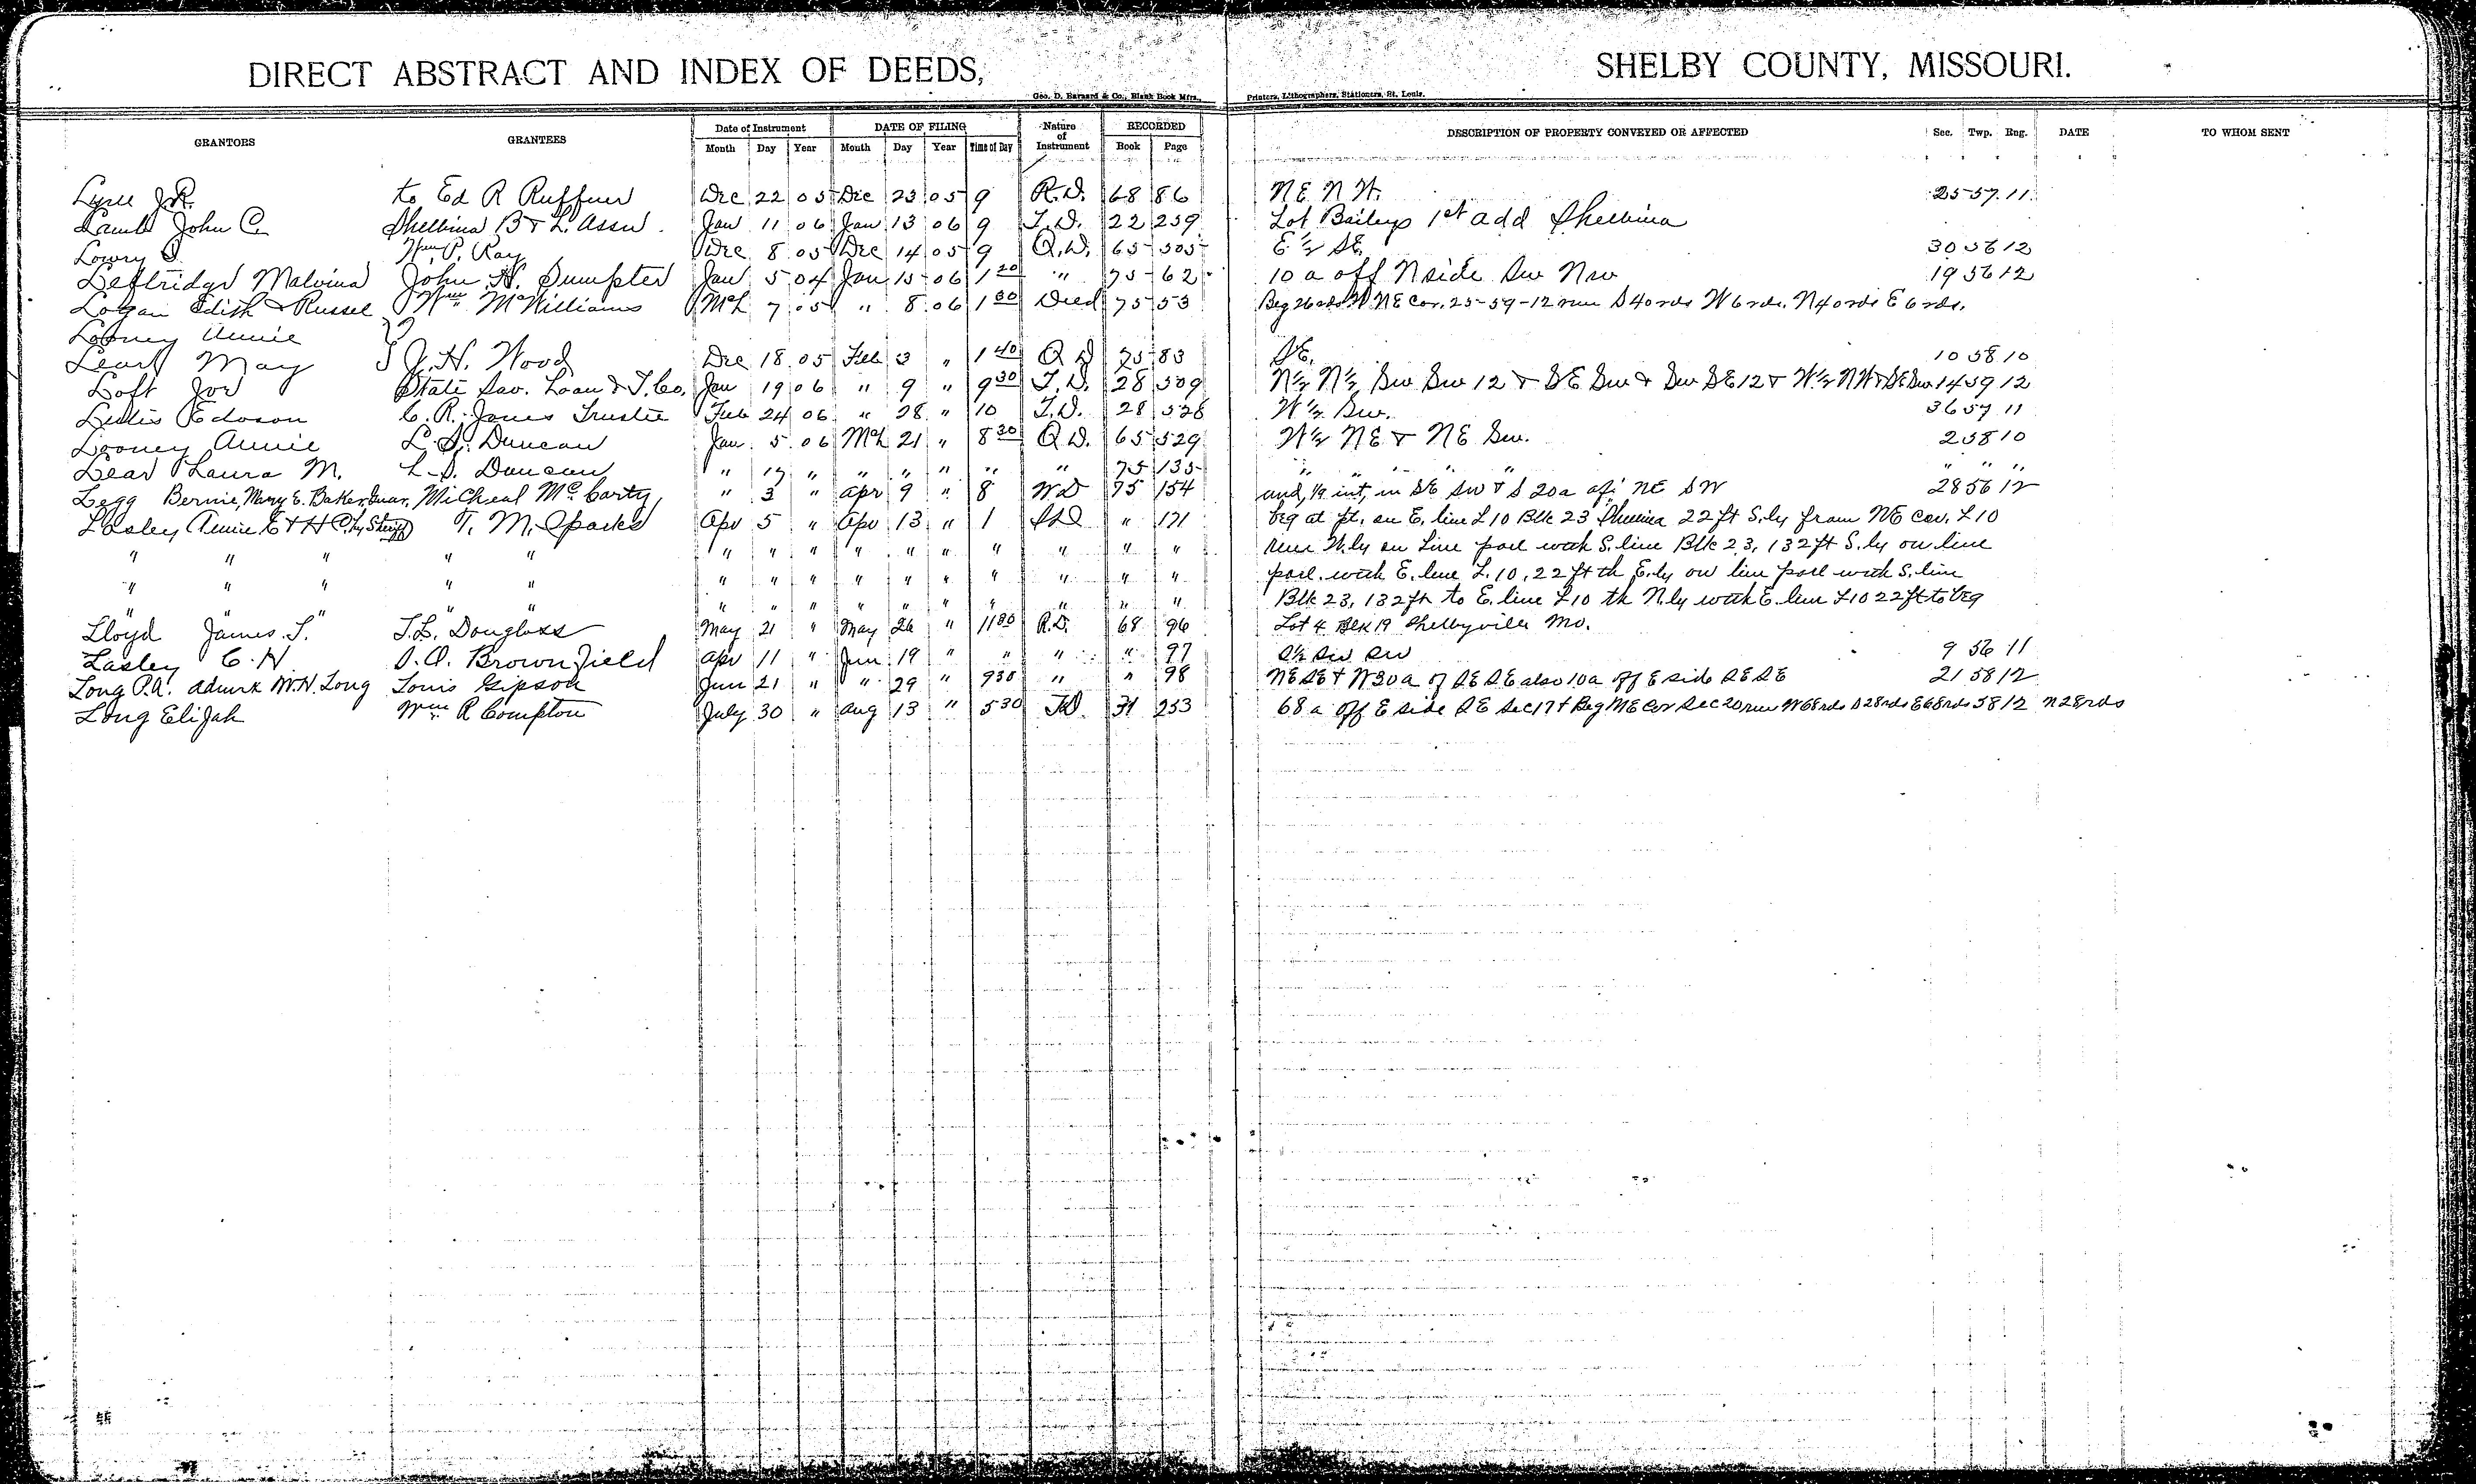 DIRECT ABSTRACT AND INDEX OF DEEDS, SHELBY COUNTY, MISSOURI.
Geo. D. Barnard & Co., Blank Book Mfrs., Printers, Lithographers, Stationers, St. Louis.
GRANTORS GRANTEES Date of Instrument DATE OF FILING Nature of Instrument RECORDED DESCRIPTION OF PROPERTY CONVEYED OR AFFECTED Sec. Twp. Rng. DATE TO WHOM SENT
Month Day Year Month Day Year Time of Day Book Page
J.R. to Ed R Ruffner Dec 22 05 Dec 23 05 9 R.D. 68 86 NE NW. 25 57 11
Lamb John C. Shelbina B & L. Assn. Jan 11 06 Jan 13 06 9 T.D. 22 259 Lot Baileys 1st add Shelbina
Lowry Wm. P. Ray Dec 8 05 Dec 14 05 9 Q.D. 65 505 E 1/2 SE. 30 56 12
Malvina John H. Sumpter Jan 5 04 Jan 15 06 1 20 " 75 62 10 a off N side Sw Nw 19 56 12
Logan Edith & Russel Wm McWilliams Mch 7 05 " 8 06 1 30 Deed 75 53 Beg 26 rds W NE Cor. 25-59-12 run S 40 rds W 6 rds. N 40 rds E 6 rds.
Looney Annie }
May } J. H. Wood Dec 18 05 Feb 3 " 1 40 Q D 75 83 SE. 10 58 10
Loft Joe State Sav. Loan & T. Co. Jan 19 06 " 9 " 9 30 T.D. 28 509 N 1/2 N 1/2 Sw Sw 12 & SE Sw & Sw SE 12 & W 1/2 NW & SE Sw 14 59 12
Edoson C. R. Jones Trustee Feb 24 06 " 28 " 10 T.D. 28 528 W 1/2 Sw. 36 57 11
Looney Annie L. S. Duncan Jan 5 06 Mch 21 " 8 30 Q D. 65 529 W 1/2 NE & NE Sw. 2 58 10
Lear Laura M. L. S. Duncan " 17 " " " " " " 75 135 " " " " " " " "
Legg Bernie, Mary E. Baker, Guar. Micheal McCarty " 3 " Apr 9 " 8 W D 75 154 und, 1/9 int, in SE SW & S 20a of NE SW 28 56 12
Lasley Annie E & H C. by Sheriff T. M. Sparks Apr 5 " Apr 13 " 1 " 171 beg at pt. on E. line L 10 Blk 23 Shelbina 22 ft S.ly from NE cor. L 10
" " " " " " " " " " " " " " " run W.ly on Line parl with S. line Blk 23, 132 ft S.ly on line
" " " " " " " " " " " " " " " parl. with E. line L. 10, 22 ft th E.ly on line parl with S. line
" " " " " " " " " " " " " " " Blk 23, 132 ft to E. line L 10 th N.ly with E. line L 10 22 ft to beg
Lloyd James T. T. L. Douglass May 21 " May 26 " 11 00 R.D. 68 96 Lot 4 Blk 19 Shelbyville Mo.
Lasley C. H. S. O. Brownfield Apr 11 " Jun 19 " " " " 97 S 1/2 SW SW 9 56 11
Long P.A. Admrx W.H. Long Louis Gipson Jun 21 " " 29 " 9 30 " " 98 NE SE & W 30 a of SE SE also 10 a off E side SE SE 21 58 12
Long Elijah Wm R Compton July 30 " Aug 13 " 5 30 T.D. 31 253 68 a off E side SE Sec 17 & Beg NE Cor Sec 20 run W 68 rds S 28 rds E 68 rds 58 12 N 28 rds